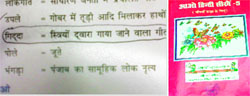 लोकगीत - साधारण जनता के गीत
उपले - गोबर में तूड़ी आदि मिलाकर हाथों
गिद्दा - स्त्रियों द्वारा गाया जाने वाला गीत
पोले - जूते
भंगड़ा - पंजाब का सामूहिक लोक नृत्य
आओ हिन्दी सीखें - 5